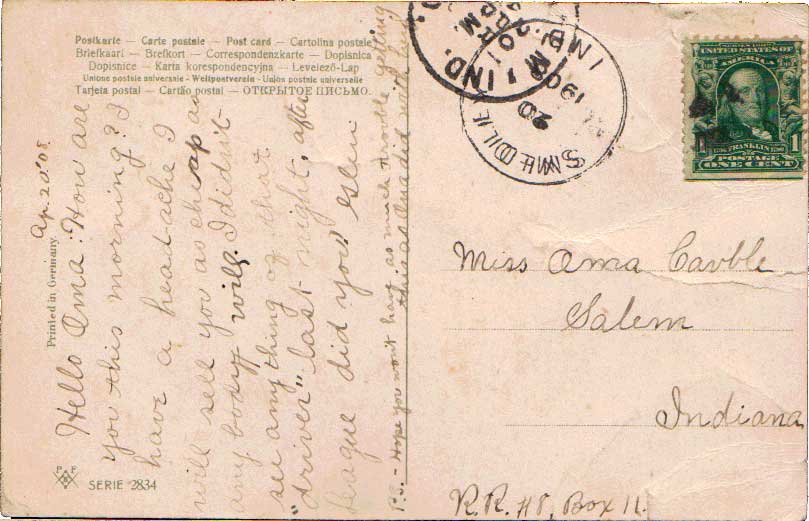 Postkarte — Carte postale — Post card — Cartolina postale
Briefkaart — Brefkort — Correspondenzkarte — Dopisnica
Dopisnice — Karta korespondencyjna — Levelező-Lap
Union postale universelle - Weltpostverein - Unione postale universale
Tarjeta postal — Cartão postal — ОТКРЫТОЕ ПИСЬМО.
Printed in Germany
Ap. 20 '08
Hello Oma: How are
you this morning? I
have a headache I
will sell you as cheap as
any body will. I didn't
see anything of that
"driver" last night, after
league did you?
P.S. — Hope you won't have as much trouble getting
this as Ona did with
P F B
SERIE 2834
IND.
SMEDLEY
IND.
20
190
SERIES 1902
UNITED STATES OF
AMERICA
FRANKLIN
POSTAGE
1 ONE CENT 1
Miss Oma Cauble
Salem
Indiana
R. R. #8, Box 11.